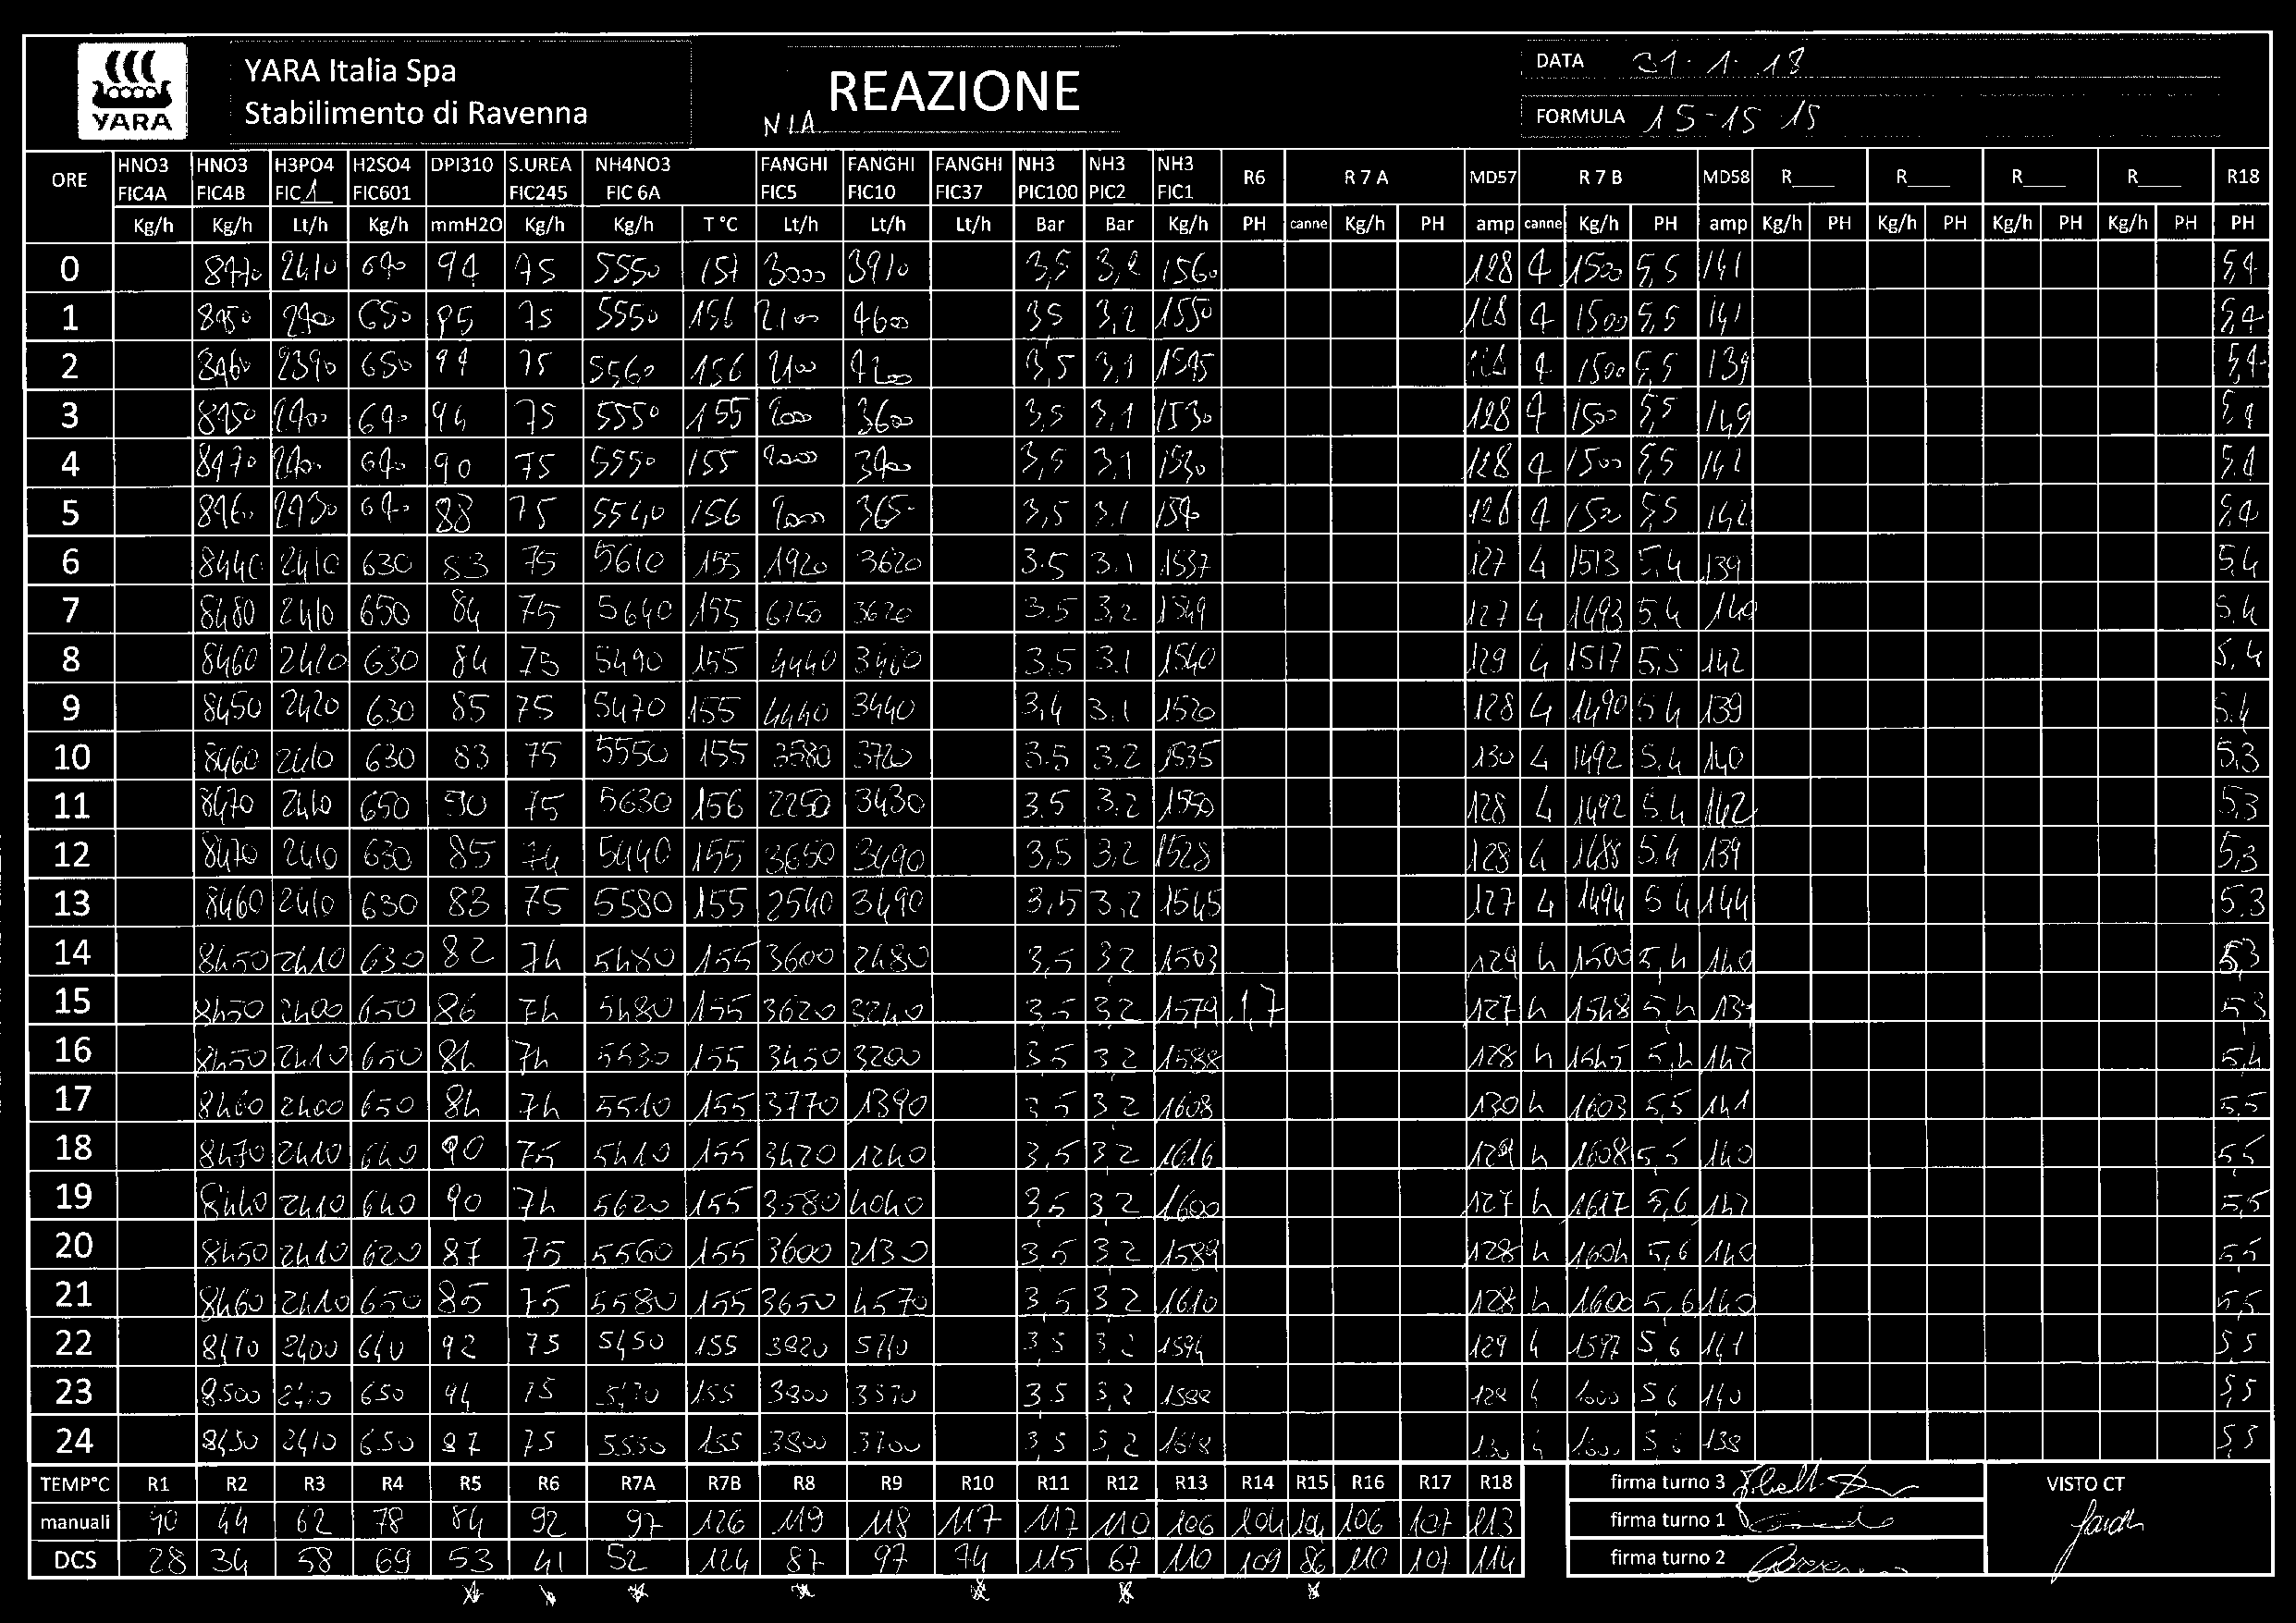 YARA
YARA Italia Spa
Stabilimento di Ravenna
REAZIONE
N1A
DATA 31-1-18
FORMULA 15-15 15
ORE HNO3 FIC4A HNO3 FIC4B H3PO4 FIC 1 H2SO4 FIC601 DPI310 S.UREA FIC245 NH4NO3 FIC 6A FANGHI FIC5 FANGHI FIC10 FANGHI FIC37 NH3 PIC100 NH3 PIC2 NH3 FIC1 R6 R 7 A MD57 R 7 B MD58 R___ R___ R___ R___ R18
Kg/h Kg/h Lt/h Kg/h mmH2O Kg/h Kg/h T °C Lt/h Lt/h Lt/h Bar Bar Kg/h PH canne Kg/h PH amp canne Kg/h PH amp Kg/h PH Kg/h PH Kg/h PH Kg/h PH PH
0 8470 2410 640 94 75 5550 157 3000 3910 3,5 3,2 1560 128 4 1500 5,5 141 5,4
1 8450 2400 650 95 75 5550 156 2100 4600 35 3,2 1550 128 4 1500 5,5 141 5,4
2 8460 2390 650 94 75 5560 156 2100 4200 3,5 3,1 1545 4 1500 5,5 139 5,4
3 8450 2400 640 94 75 5550 155 2000 3600 3,5 3,1 1530 128 4 1500 5,5 149 5,4
4 8470 2400 640 90 75 5550 155 2000 3400 3,5 3,1 1530 128 4 1500 5,5 142 5,4
5 8460 2430 640 88 75 5540 156 2000 3650 3,5 3,1 1540 128 4 1500 5,5 142 5,4
6 8440 2410 630 83 75 5610 155 1920 3620 3.5 3.1 1537 127 4 1513 5,4 139 5,4
7 8480 2410 650 84 75 5640 155 6750 3620 3.5 3,2 1549 127 4 1493 5.4 140 5.4
8 8460 2420 630 84 75 5490 155 4440 3460 3.5 3.1 1540 129 4 1517 5,5 142 5,4
9 8450 2420 630 85 75 5470 155 4440 3440 3,4 3.1 1520 128 4 1490 5 4 139 5.4
10 8460 2410 630 83 75 5550 155 3580 3720 3.5 3.2 1535 130 4 1492 5.4 140 5,3
11 8470 2410 650 90 75 5630 156 2250 3430 3.5 3.2 1550 128 4 1492 5.4 142 5,3
12 8470 2410 630 85 74 5440 155 3650 3490 3,5 3,2 1528 128 4 1488 5.4 139 5,3
13 8460 2410 630 83 75 5580 155 2540 3490 3,5 3,2 1545 127 4 1494 5 4 144 5.3
14 8450 2410 630 82 74 5480 155 3600 2480 3,5 3 2 1503 129 4 1500 5,4 140 5,3
15 8450 2400 650 86 74 5480 155 3620 3240 3.5 3 2 1579 1,7 127 4 1548 5,4 5 3
16 8450 2410 650 84 74 5530 155 3450 3200 3 5 3,2 1588 128 4 1545 5,4 142 5,4
17 8460 2400 650 84 74 5510 155 3770 1390 3 5 3 2 1608 130 4 1603 5,5 141 5,5
18 8470 2410 640 90 75 5410 155 3420 1240 3,5 3 2 1616 129 4 1608 5,5 140 5 5
19 8440 2410 640 90 74 5620 155 3580 4040 3 5 3,2 1600 127 4 1617 5,6 142 5,5
20 8450 2410 620 87 75 5560 155 3600 2130 3,5 3,2 1589 128 4 1604 5,6 140 5 5
21 8460 2410 650 85 75 5580 155 3650 4570 3,5 3,2 1610 128 4 1600 5,6 140 5,5
22 8470 2400 640 92 75 5450 155 3820 5740 3 5 3,2 1594 129 4 1597 5 6 141 5,5
23 8500 2410 650 94 75 155 3800 3570 3.5 3,2 1588 128 4 1600 5 6 140 5,5
24 8450 2410 650 87 75 5550 155 3800 3700 3,5 3,2 1618 130 4 1600 5 6 138 5,5
TEMP°C R1 R2 R3 R4 R5 R6 R7A R7B R8 R9 R10 R11 R12 R13 R14 R15 R16 R17 R18
manuali 40 44 62 78 84 92 97 126 119 118 117 117 110 106 104 104 106 107 113
DCS 28 34 58 69 53 41 52 124 87 97 74 115 67 110 109 86 110 107 114
firma turno 3
firma turno 1
firma turno 2
VISTO CT